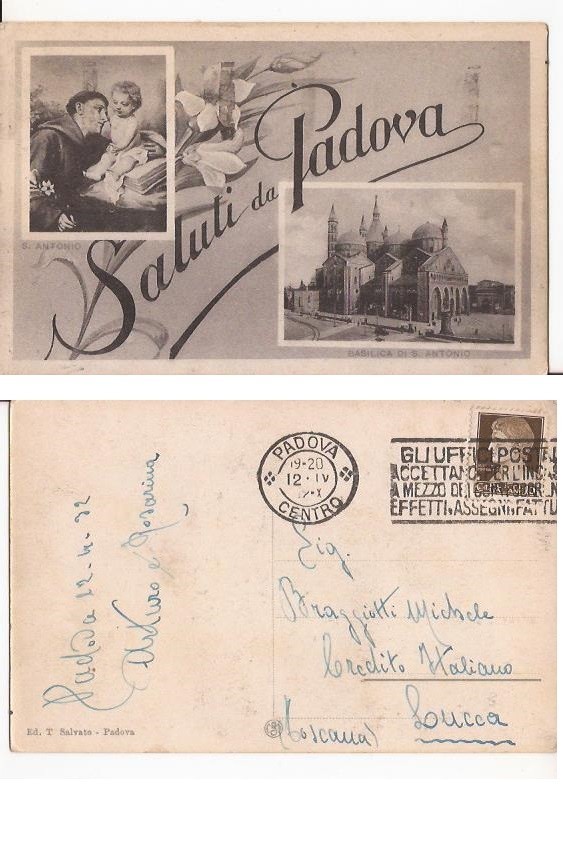 S. ANTONIO
Saluti da Padova
BASILICA DI S. ANTONIO
PADOVA
19-20
12·IV
X
CENTRO
GLI UFFICI POST
ACCETTANO PER L'INCAS
A MEZZO DEI
EFFETTI, ASSEGNI, FATTU
Padova 12-4-32
Arturo e Rosarina
Sig.
Braggiotti Michele
Credito Italiano
Lucca
(Toscana)
Ed. T Salvato - Padova